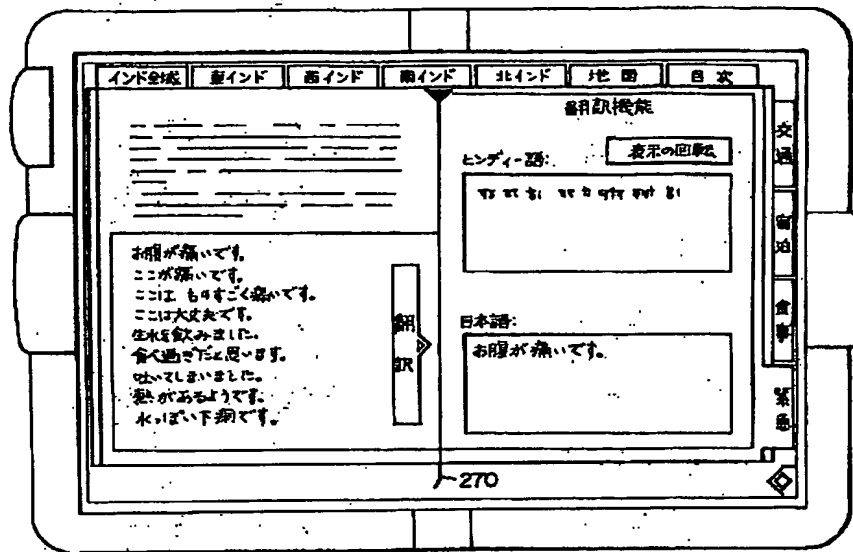 インド全域 東インド 西インド 南インド 北インド 地図 目次
翻訳機能
表示の回転
ヒンディー語:
お腹が痛いです。
ここが痛いです。
ここは ものすごく痛いです。
ここは大丈夫です。
生水を飲みました。
食べ過ぎだと思います。
吐いてしまいました。
熱があるようです。
水っぽい下痢です。
翻訳
日本語:
お腹が痛いです。
交通
宿泊
食事
緊急
270